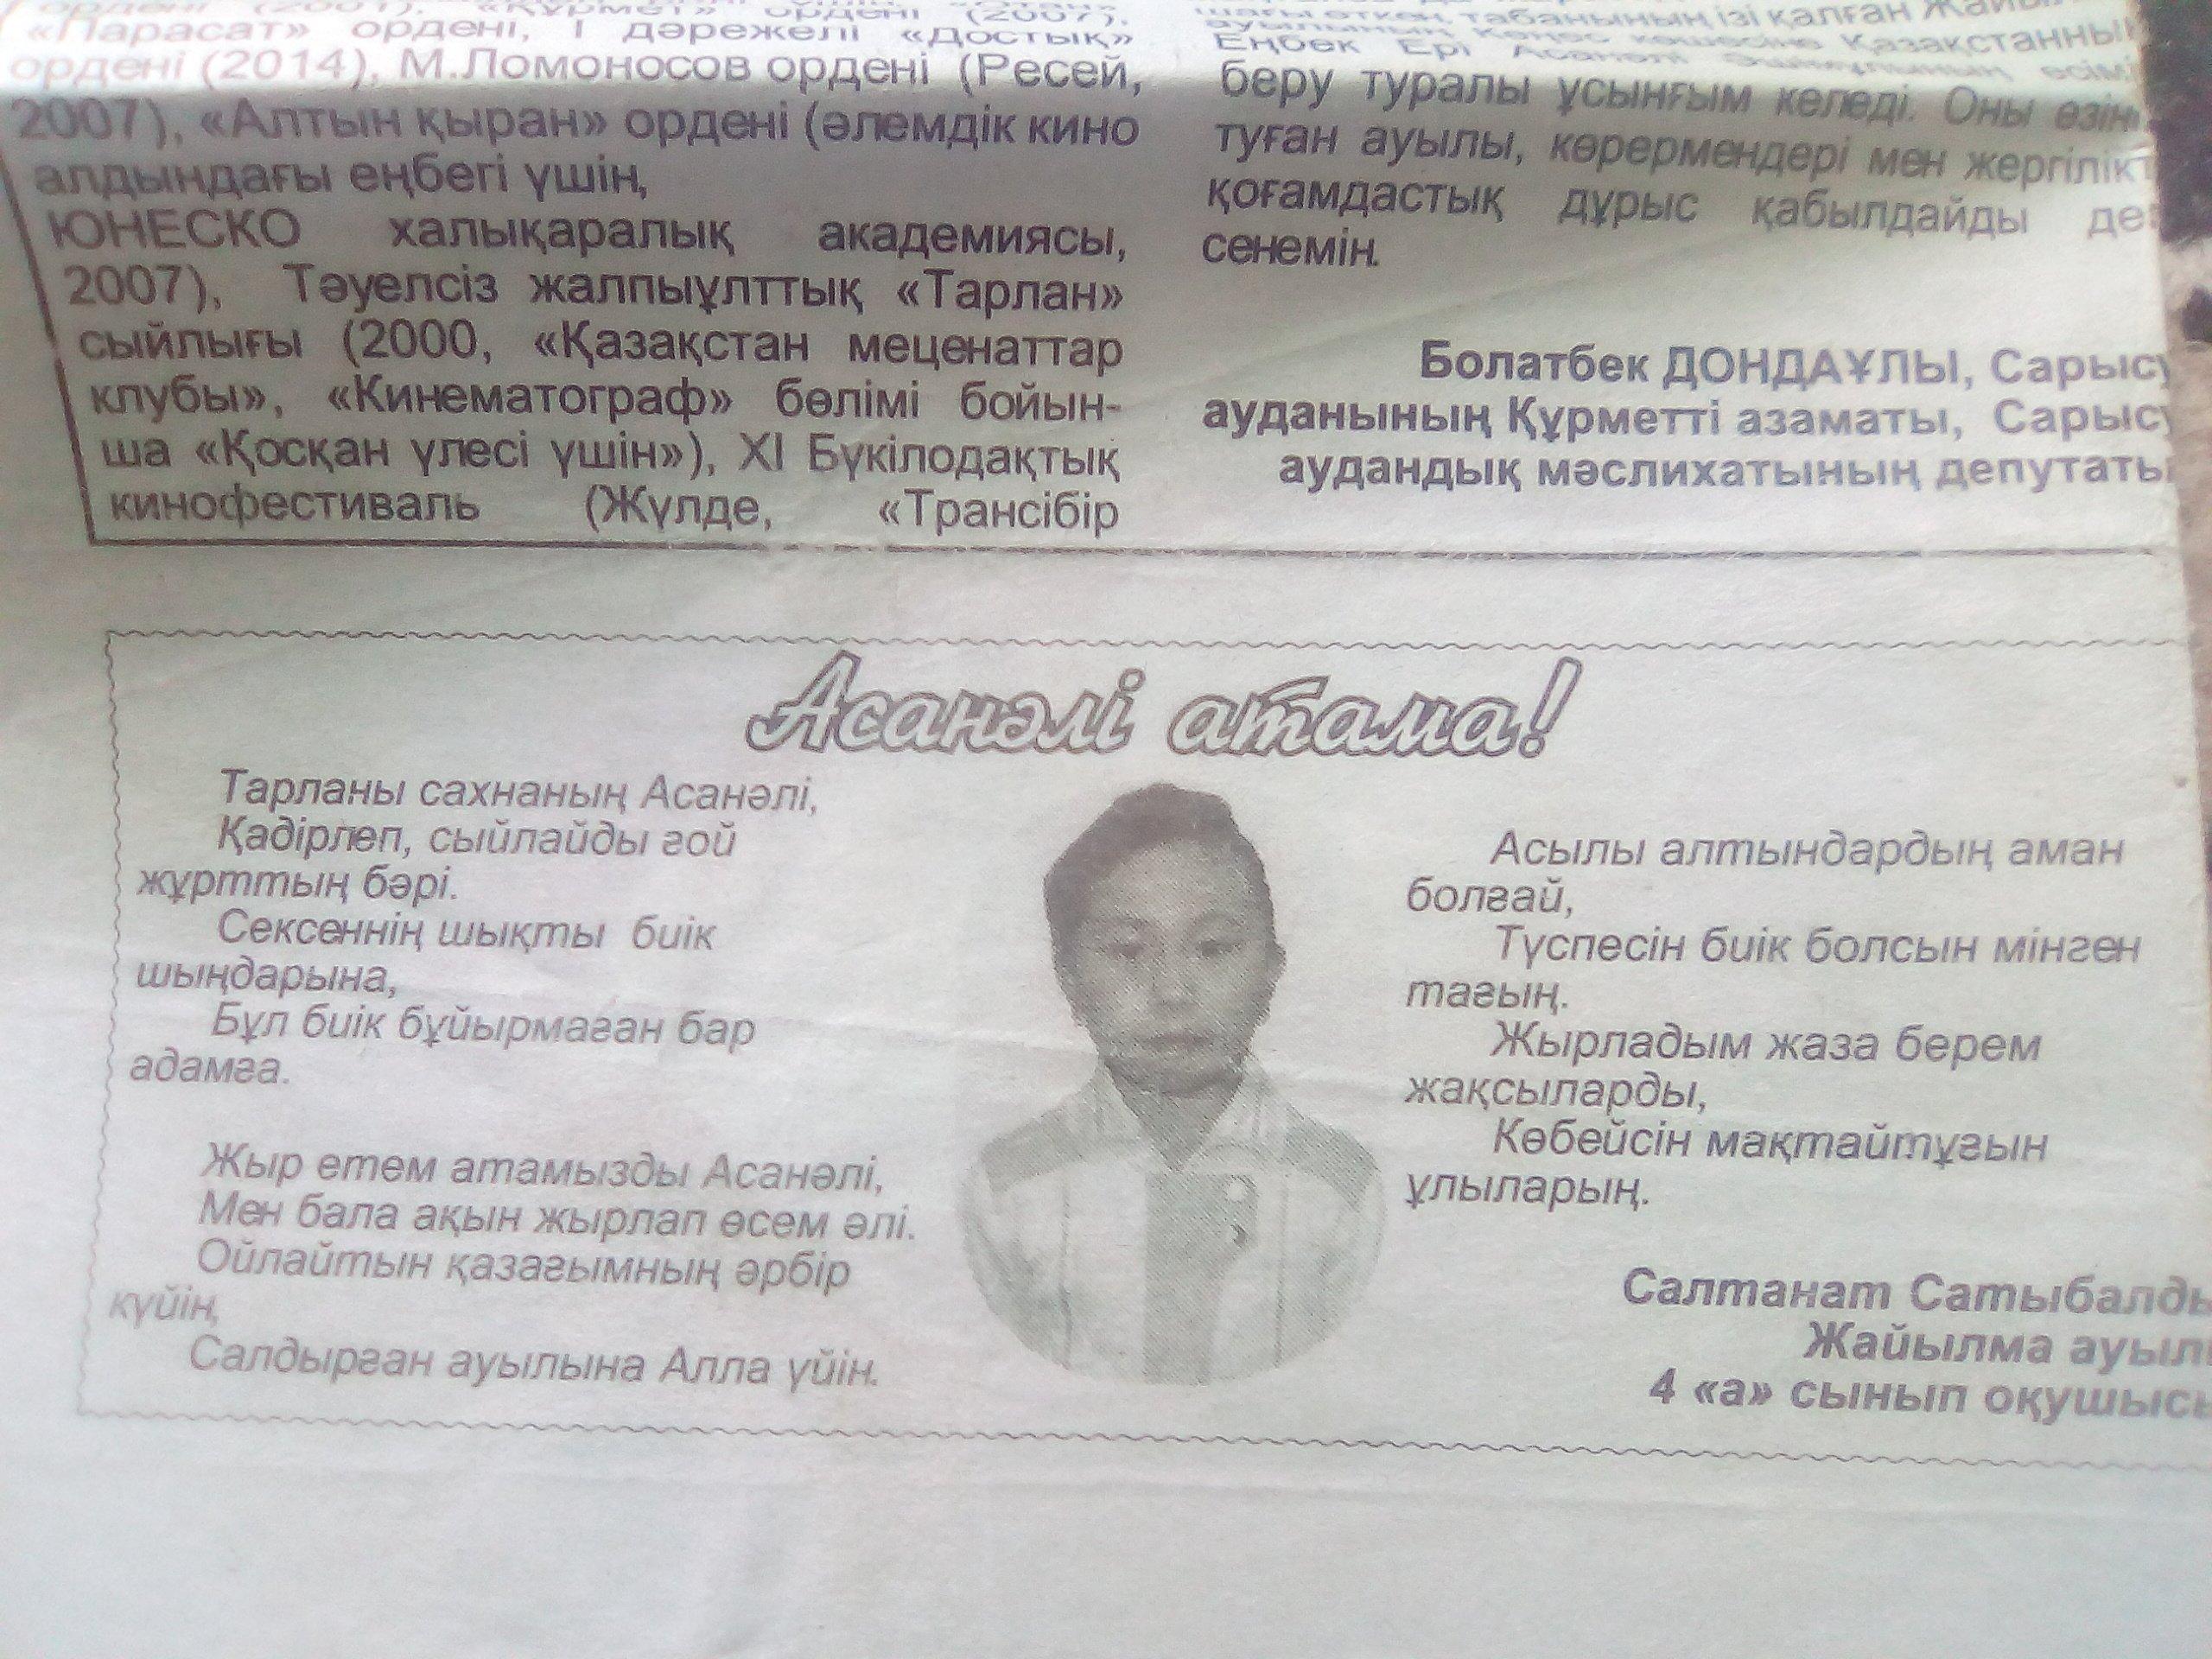 «Парасат» ордені, І дәрежелі «Достық»
ордені (2014), М.Ломоносов ордені (Ресей,
2007), «Алтын қыран» ордені (әлемдік кино
алдындағы еңбегі үшін,
ЮНЕСКО халықаралық академиясы,
2007), Тәуелсіз жалпыұлттық «Тарлан»
сыйлығы (2000, «Қазақстан меценаттар
клубы», «Кинематограф» бөлімі бойын-
ша «Қосқан үлесі үшін»), XI Бүкілодақтық
кинофестиваль (Жүлде, «Трансібір
Еңбек Ері
беру туралы ұсынғым келеді. Оны өзін
туған ауылы, көрермендері мен жергілікт
қоғамдастық дұрыс қабылдайды де
сенемін.
Болатбек ДОНДАҰЛЫ, Сарыс
ауданының Құрметті азаматы, Сарыс
аудандық мәслихатының депутаты
Асанәлі атама!
Тарланы сахнаның Асанәлі,
Қадірлеп, сыйлайды ғой
жұрттың бәрі.
Сексеннің шықты биік
шыңдарына,
Бұл биік бұйырмаған бар
адамға.
Жыр етем атамызды Асанәлі,
Мен бала ақын жырлап өсем әлі.
Ойлайтын қазағымның әрбір
күйін,
Салдырған ауылына Алла үйін.
Асылы алтындардың аман
болғай,
Түспесін биік болсын мінген
тағың.
Жырладым жаза берем
жақсыларды,
Көбейсін мақтайтұғын
ұлыларың.
Салтанат Сатыбалды
Жайылма ауыл
4 «а» сынып оқушысы